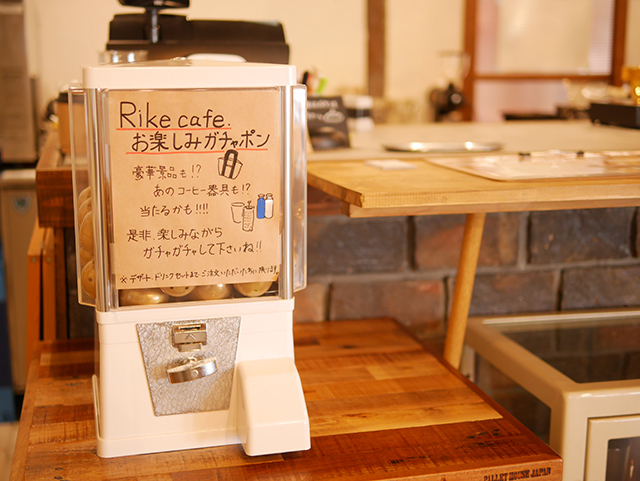 Rike cafe.
お楽しみガチャポン
豪華景品も!?
あのコーヒー器具も!?
当たるかも!!!!
是非、楽しみながら
ガチャガチャして下さいね!!
※デザート、ドリンクセットまでご注文いただいた方に限ります
PALLET HOUSE JAPAN